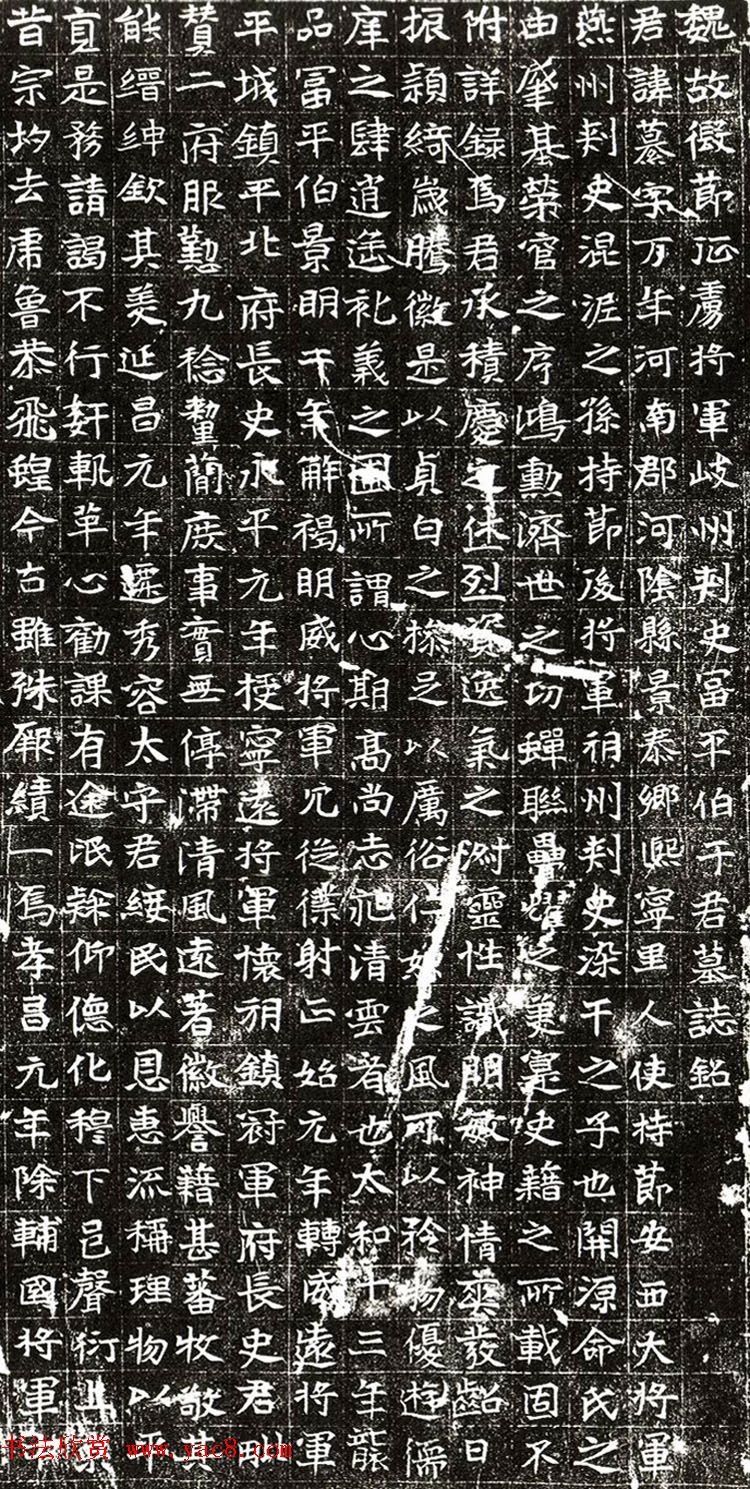 魏故假節征虜將軍岐州刺史富平伯于君墓誌銘
君諱纂字万年河南郡河陰縣景泰鄉熙寧里人使持節安西大將軍
燕州刺史混泥之孫持節後將軍朔州刺史染干之子也開源命氏之
由肇基榮官之序鴻勳濟世之功蟬聯疊燿之美寔史籍之所載固不
附詳録焉君承積慶之休烈資逸氣之沖靈性識朗敏神情爽發齠日
振穎綺歲騰徽是以貞白之操足以厲俗仁恕之風可以矜物優遊儒
庠之肆逍遙礼義之圃所謂心期高尚志邈清雲者也太和十三年襲
品富平伯景明干年解褐明威將軍冗從僕射正始元年轉威遠將軍
平城鎮平北府長史永平元年授寧遠將軍懷朔鎮冠軍府長史君
贊二府服懃九稔聲簡庶事實無停滯清風遠著徽譽籍甚蕃牧敬其
能縉紳欽其美延昌元年遷秀容太守君綏民以恩惠流稱理物以平
直是務請謁不行奸軌革心勸課有途氓餘仰德化穆下邑聲衍上
昔宗均去虎魯恭飛蝗今古雖殊厥績一焉孝昌元年除輔國將軍
书法欣赏 www.yac8.com